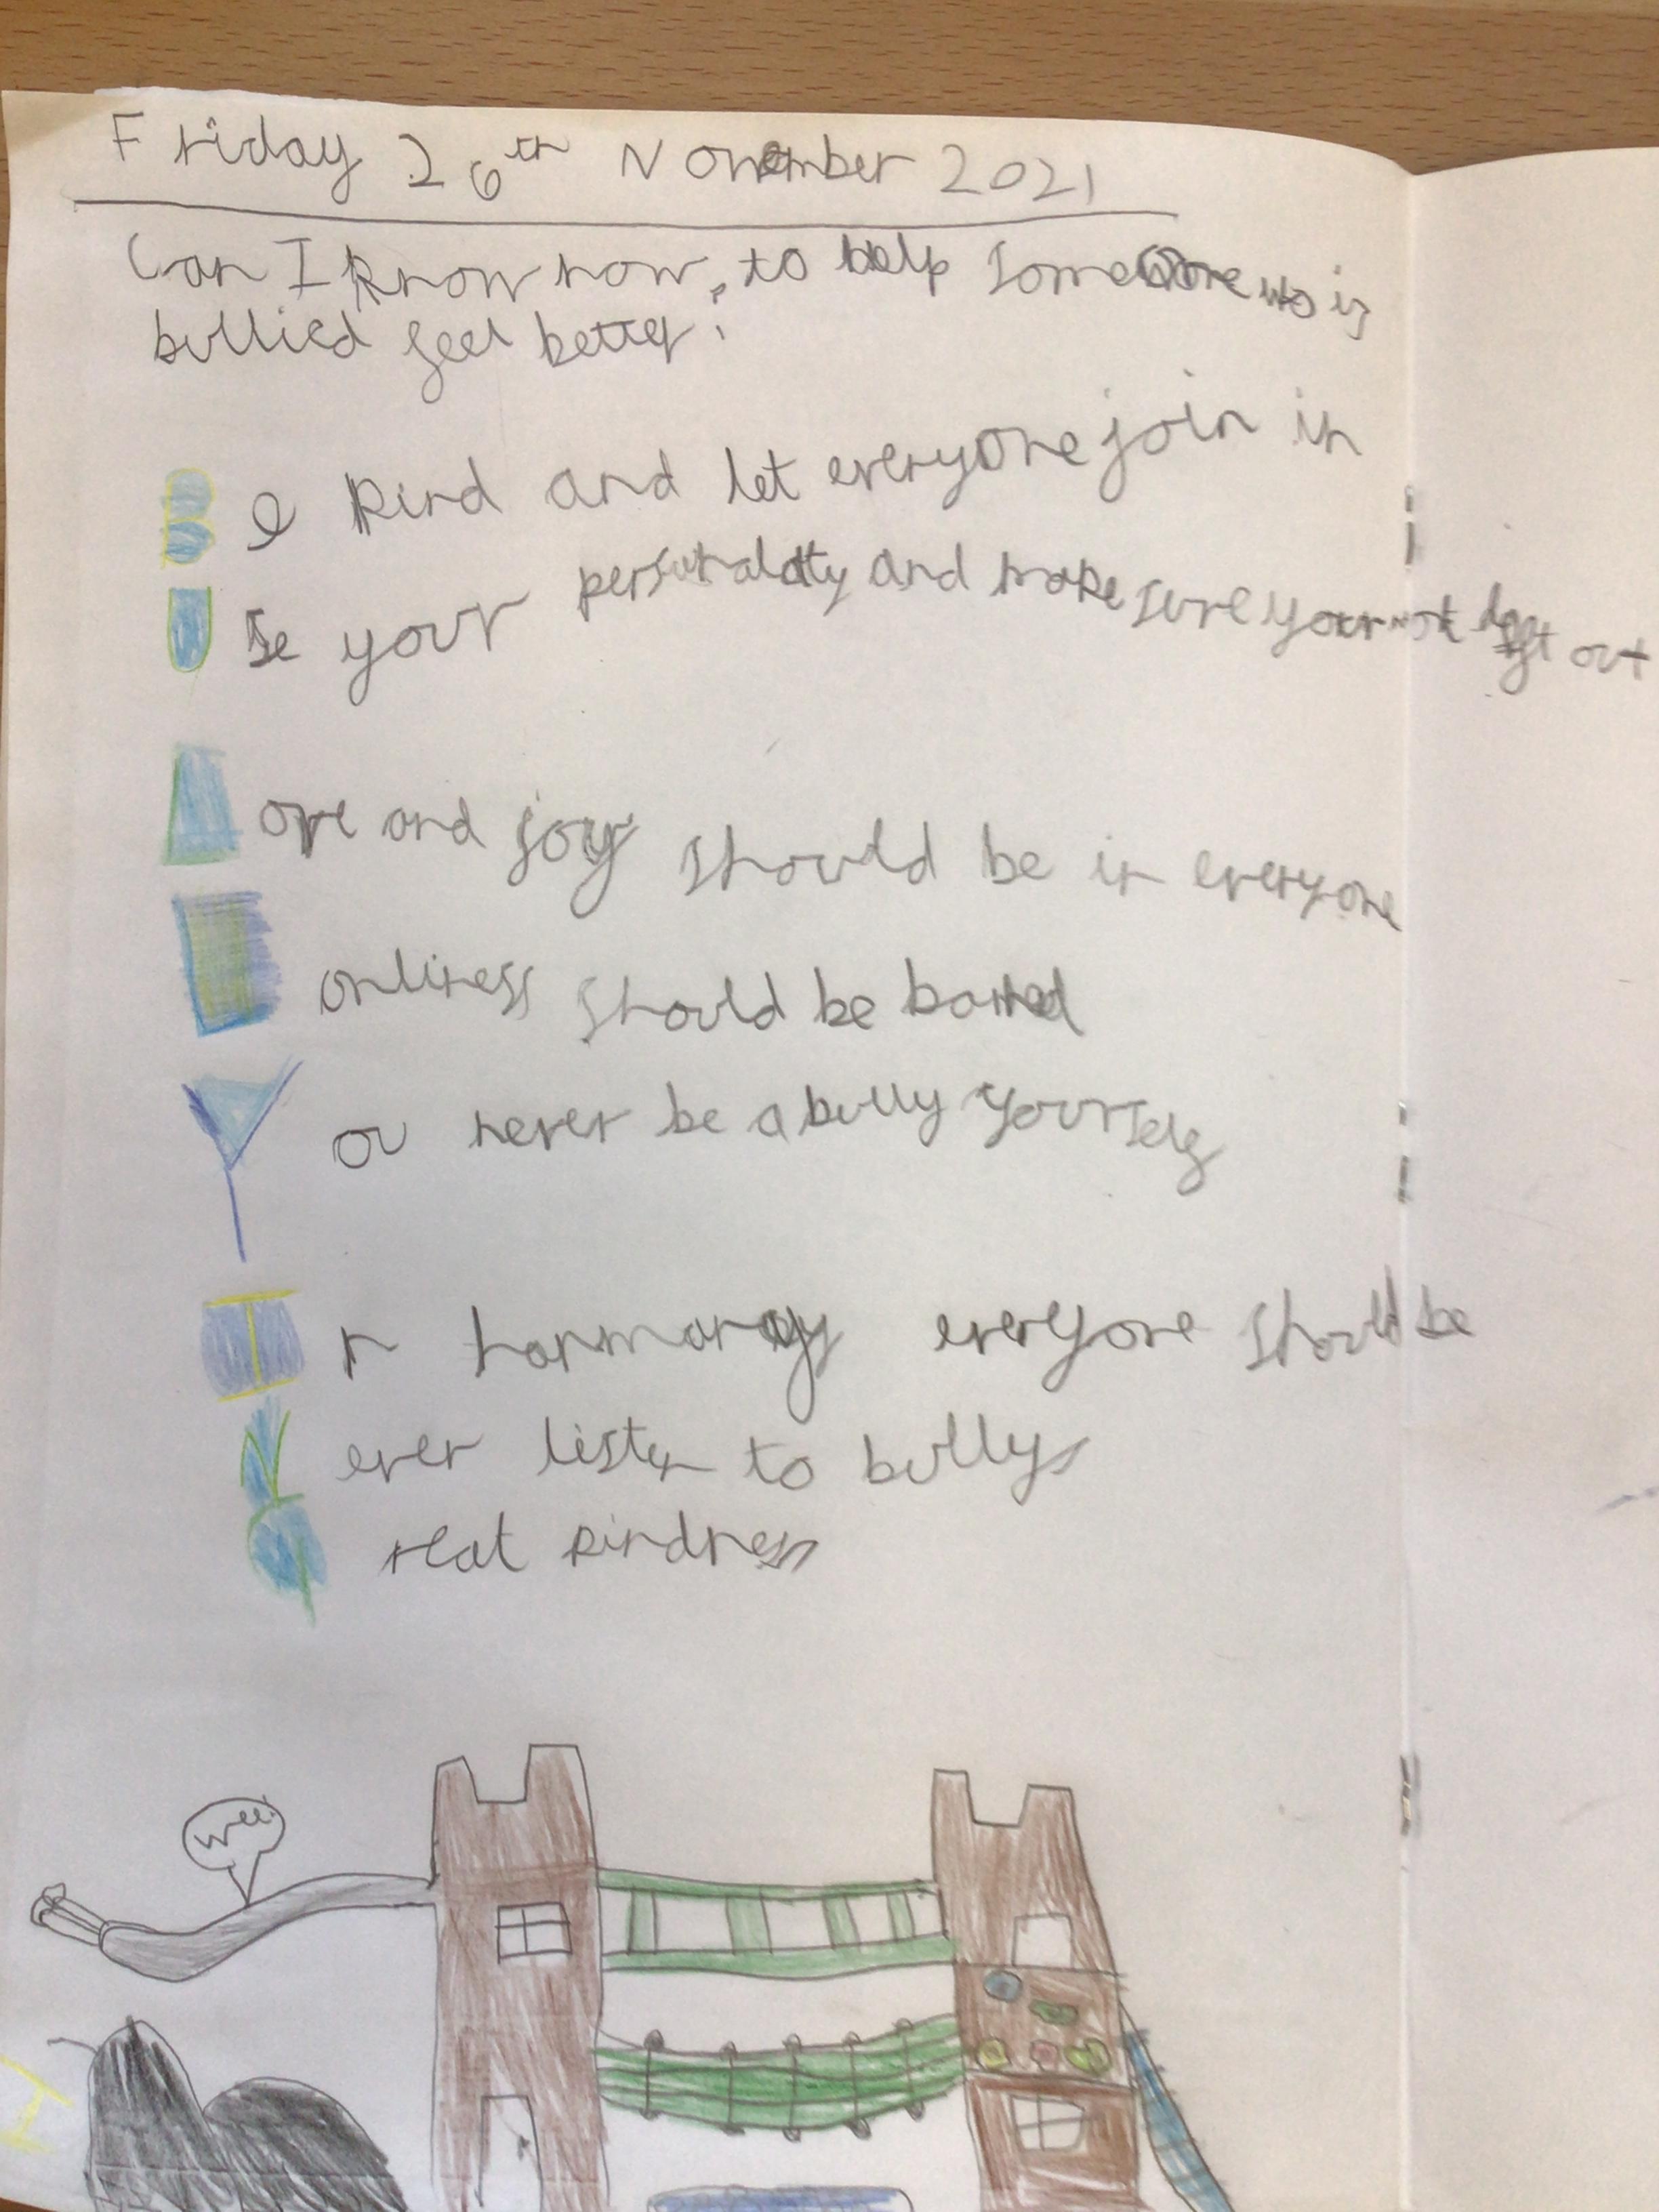 Friday 26th November 2021
Can I know how to help someone who is
bullied feel better?
Be kind and let everyone join in
Use your personalaty and make sure your not left out
Love and joy should be in everyone
Lonliness should be banned
You never be a bully yourself
In harmony everyone should be
Never listen to bullys
Great kindness
wee